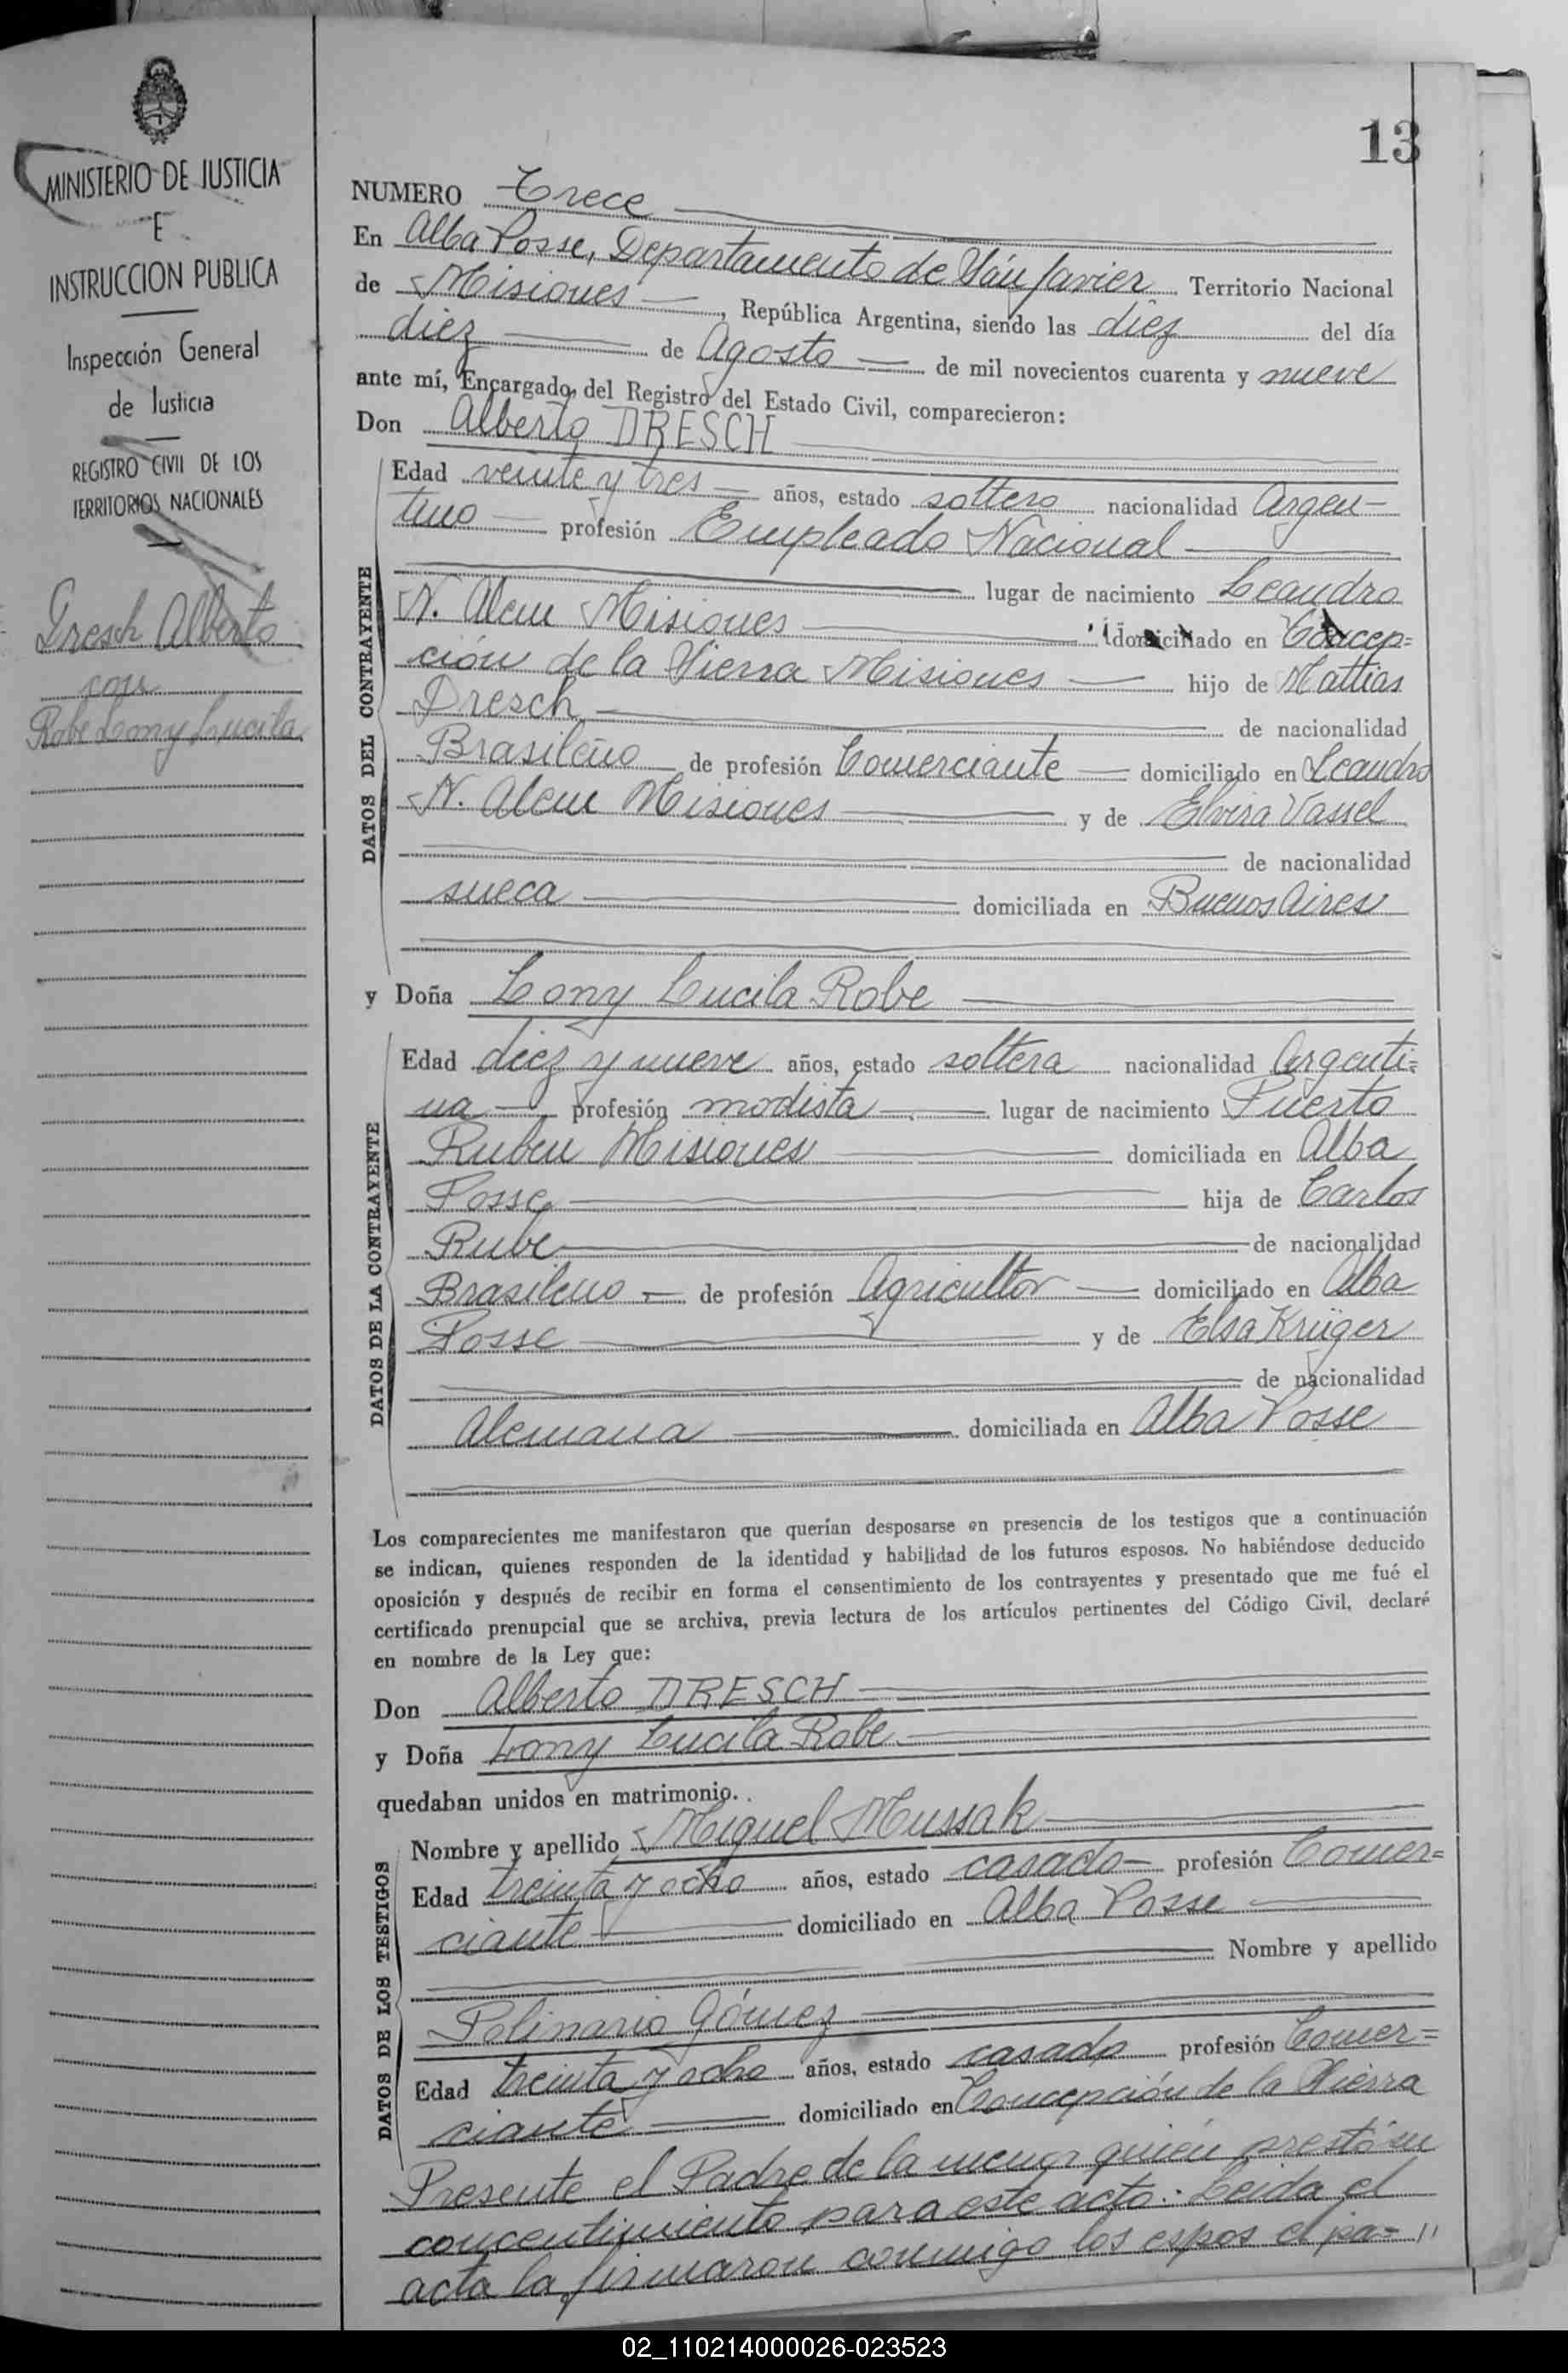 13
MINISTERIO DE JUSTICIA
E
INSTRUCCION PUBLICA
Inspección General
de Justicia
REGISTRO CIVIL DE LOS
TERRITORIOS NACIONALES
Dresch Alberto
con
Robe Lony Lucila
NUMERO Trece
En Alba Posse, Departamento de San Javier Territorio Nacional
de Misiones, República Argentina, siendo las diez del día
diez de Agosto de mil novecientos cuarenta y nueve
ante mí, Encargado del Registro del Estado Civil, comparecieron:
Don Alberto DRESCH
DATOS DEL CONTRAYENTE
Edad veinte y tres años, estado soltero nacionalidad Argen-
tino profesión Empleado Nacional
lugar de nacimiento Leandro
N. Alem Misiones domiciliado en Concep=
ción de la Sierra Misiones hijo de Mattias
Dresch de nacionalidad
Brasileño de profesión Comerciante domiciliado en Leandro
N. Alem Misiones y de Elvira Vassel
de nacionalidad
sueca domiciliada en Buenos Aires
y Doña Lony Lucila Robe
DATOS DE LA CONTRAYENTE
Edad diez y nueve años, estado soltera nacionalidad Argenti=
na profesión modista lugar de nacimiento Puerto
Ruben Misiones domiciliada en Alba
Posse hija de Carlos
Rube de nacionalidad
Brasileño de profesión Agricultor domiciliado en Alba
Posse y de Elsa Krüger
de nacionalidad
Alemana domiciliada en Alba Posse
Los comparecientes me manifestaron que querían desposarse en presencia de los testigos que a continuación
se indican, quienes responden de la identidad y habilidad de los futuros esposos. No habiéndose deducido
oposición y después de recibir en forma el consentimiento de los contrayentes y presentado que me fué el
certificado prenupcial que se archiva, previa lectura de los artículos pertinentes del Código Civil, declaré
en nombre de la Ley que:
Don Alberto DRESCH
y Doña Lony Lucila Robe
quedaban unidos en matrimonio.
DATOS DE LOS TESTIGOS
Nombre y apellido Miguel Mussak
Edad treinta y ocho años, estado casado profesión Comer=
ciante domiciliado en Alba Posse
Nombre y apellido
Polinario Gómez
Edad treinta y ocho años, estado casado profesión Comer=
ciante domiciliado en Concepción de la Sierra
Presente el Padre de la menor quién prestó su
concentimiento para este acto. Leida el
acta la firmaron conmigo los espos el pa= "
02_110214000026-023523